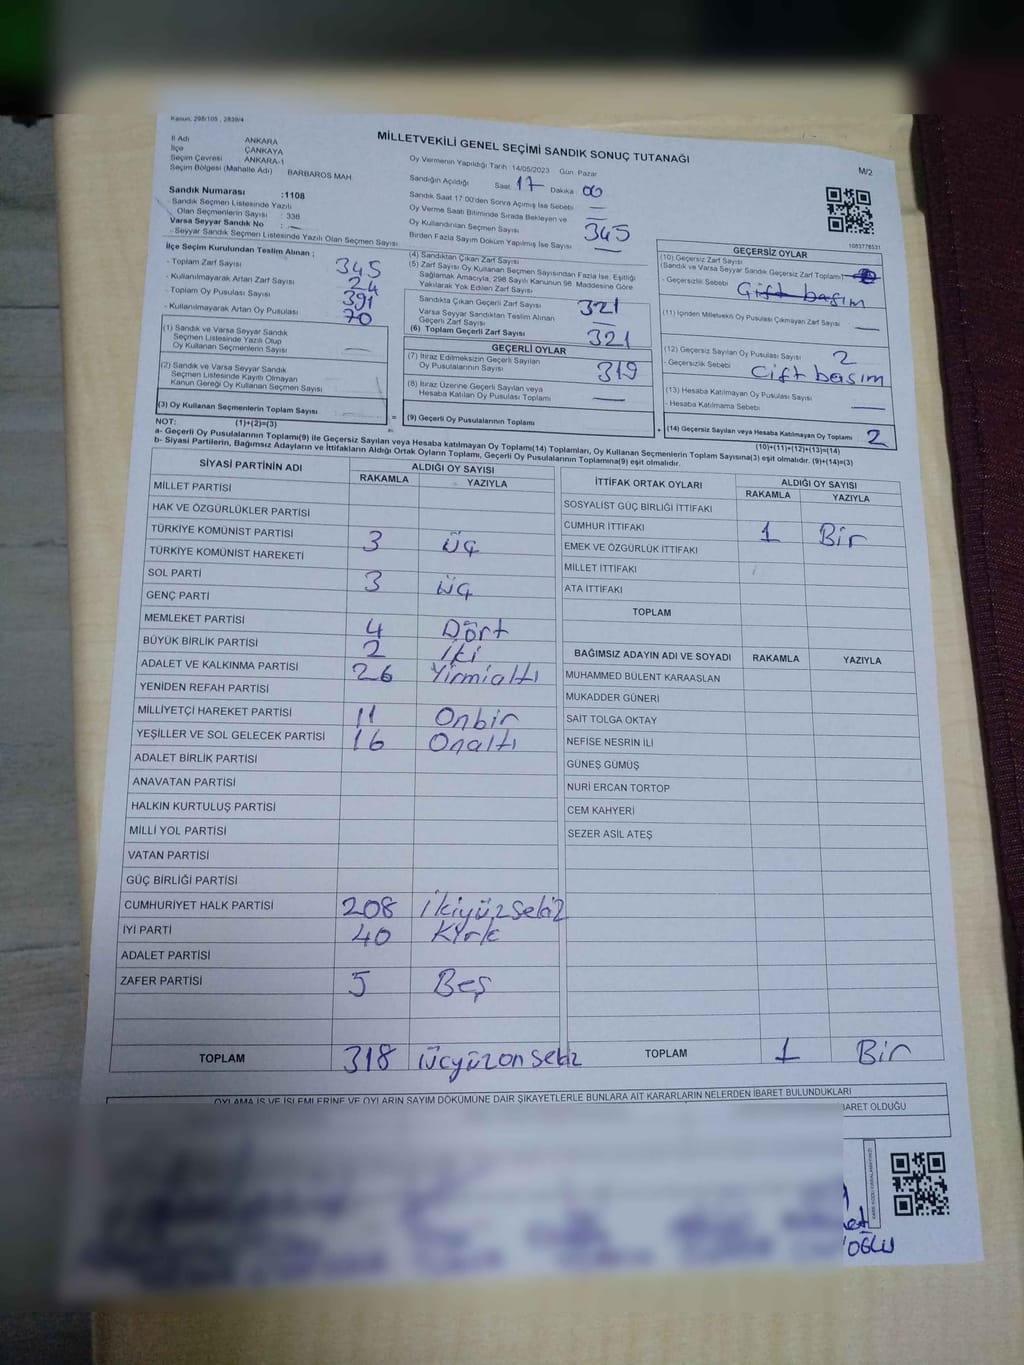 Kanun, 298/105 , 2839/4
MİLLETVEKİLİ GENEL SEÇİMİ SANDIK SONUÇ TUTANAĞI
M/2
İl Adı ANKARA
İlçe ÇANKAYA
Seçim Çevresi ANKARA-1
Seçim Bölgesi (Mahalle Adı) BARBAROS MAH
Sandık Numarası :1108
- Sandık Seçmen Listesinde Yazılı
Olan Seçmenlerin Sayısı : 336
Varsa Seyyar Sandık No : —
- Seyyar Sandık Seçmen Listesinde Yazılı Olan Seçmen Sayısı
Oy Vermenin Yapıldığı Tarih :14/05/2023 Gün: Pazar
Sandığın Açıldığı Saat 17 Dakika 00
Sandık Saat 17.00'den Sonra Açılmış İse Sebebi —
Oy Verme Saati Bitiminde Sırada Bekleyen ve —
Oy Kullandırılan Seçmen Sayısı 345
Birden Fazla Sayım Döküm Yapılmış İse Sayısı —
1083778531
İlçe Seçim Kurulundan Teslim Alınan ;
- Toplam Zarf Sayısı 345
- Kullanılmayarak Artan Zarf Sayısı 24
- Toplam Oy Pusulası Sayısı 391
- Kullanılmayarak Artan Oy Pusulası 70
(1) Sandık ve Varsa Seyyar Sandık
Seçmen Listesinde Yazılı Olup
Oy Kullanan Seçmenlerin Sayısı —
(2) Sandık ve Varsa Seyyar Sandık
Seçmen Listesinde Kayıtlı Olmayan
Kanun Gereği Oy Kullanan Seçmen Sayısı
(3) Oy Kullanan Seçmenlerin Toplam Sayısı
(1)+(2)=(3)
(4) Sandıktan Çıkan Zarf Sayısı
(5) Zarf Sayısı Oy Kullanan Seçmen Sayısından Fazla İse, Eşitliği
Sağlamak Amacıyla, 298 Sayılı Kanunun 98. Maddesine Göre
Yakılarak Yok Edilen Zarf Sayısı
Sandıkta Çıkan Geçerli Zarf Sayısı 321
Varsa Seyyar Sandıktan Teslim Alınan
Geçerli Zarf Sayısı —
(6) Toplam Geçerli Zarf Sayısı 321
GEÇERLİ OYLAR
(7) İtiraz Edilmeksizin Geçerli Sayılan
Oy Pusulalarının Sayısı 319
(8) İtiraz Üzerine Geçerli Sayılan veya
Hesaba Katılan Oy Pusulası Toplamı —
= (9) Geçerli Oy Pusulalarının Toplamı
GEÇERSİZ OYLAR
(10) Geçersiz Zarf Sayısı
(Sandık ve Varsa Seyyar Sandık Geçersiz Zarf Toplamı)
- Geçersizlik Sebebi Çift basım
(11) İçinden Milletvekili Oy Pusulası Çıkmayan Zarf Sayısı —
(12) Geçersiz Sayılan Oy Pusulası Sayısı 2
- Geçersizlik Sebebi Çift basım
(13) Hesaba Katılmayan Oy Pusulası Sayısı
- Hesaba Katılmama Sebebi —
+ (14) Geçersiz Sayılan veya Hesaba Katılmayan Oy Toplamı 2
(10)+(11)+(12)+(13)=(14)
NOT:
a- Geçerli Oy Pusulalarının Toplamı(9) ile Geçersiz Sayılan veya Hesaba katılmayan Oy Toplamı(14) Toplamları, Oy Kullanan Seçmenlerin Toplam Sayısına(3) eşit olmalıdır. (9)+(14)=(3)
b- Siyasi Partilerin, Bağımsız Adayların ve İttifakların Aldığı Ortak Oyların Toplamı, Geçerli Oy Pusulalarının Toplamına(9) eşit olmalıdır.
SİYASİ PARTİNİN ADI ALDIĞI OY SAYISI
RAKAMLA YAZIYLA
MİLLET PARTİSİ
HAK VE ÖZGÜRLÜKLER PARTİSİ
TÜRKİYE KOMÜNİST PARTİSİ 3 Üç
TÜRKİYE KOMÜNİST HAREKETİ
SOL PARTİ 3 üç
GENÇ PARTİ
MEMLEKET PARTİSİ 4 Dört
BÜYÜK BİRLİK PARTİSİ 2 İki
ADALET VE KALKINMA PARTİSİ 26 Yirmialtı
YENİDEN REFAH PARTİSİ
MİLLİYETÇİ HAREKET PARTİSİ 11 Onbir
YEŞİLLER VE SOL GELECEK PARTİSİ 16 Onaltı
ADALET BİRLİK PARTİSİ
ANAVATAN PARTİSİ
HALKIN KURTULUŞ PARTİSİ
MİLLİ YOL PARTİSİ
VATAN PARTİSİ
GÜÇ BİRLİĞİ PARTİSİ
CUMHURİYET HALK PARTİSİ 208 İkiyüzsekiz
İYİ PARTİ 40 Kırk
ADALET PARTİSİ
ZAFER PARTİSİ 5 Beş
TOPLAM 318 üçyüzonsekiz
İTTİFAK ORTAK OYLARI ALDIĞI OY SAYISI
RAKAMLA YAZIYLA
SOSYALİST GÜÇ BİRLİĞİ İTTİFAKI
CUMHUR İTTİFAKI 1 Bir
EMEK VE ÖZGÜRLÜK İTTİFAKI
MİLLET İTTİFAKI
ATA İTTİFAKI
TOPLAM
BAĞIMSIZ ADAYIN ADI VE SOYADI RAKAMLA YAZIYLA
MUHAMMED BÜLENT KARAASLAN
MUKADDER GÜNERİ
SAİT TOLGA OKTAY
NEFİSE NESRİN İLİ
GÜNEŞ GÜMÜŞ
NURİ ERCAN TORTOP
CEM KAHYERİ
SEZER ASİL ATEŞ
TOPLAM 1 Bir
OYLAMA İŞ VE İŞLEMLERİNE VE OYLARIN SAYIM DÖKÜMÜNE DAİR ŞİKAYETLERLE BUNLARA AİT KARARLARIN NELERDEN İBARET BULUNDUKLARI
BARET OLDUĞU